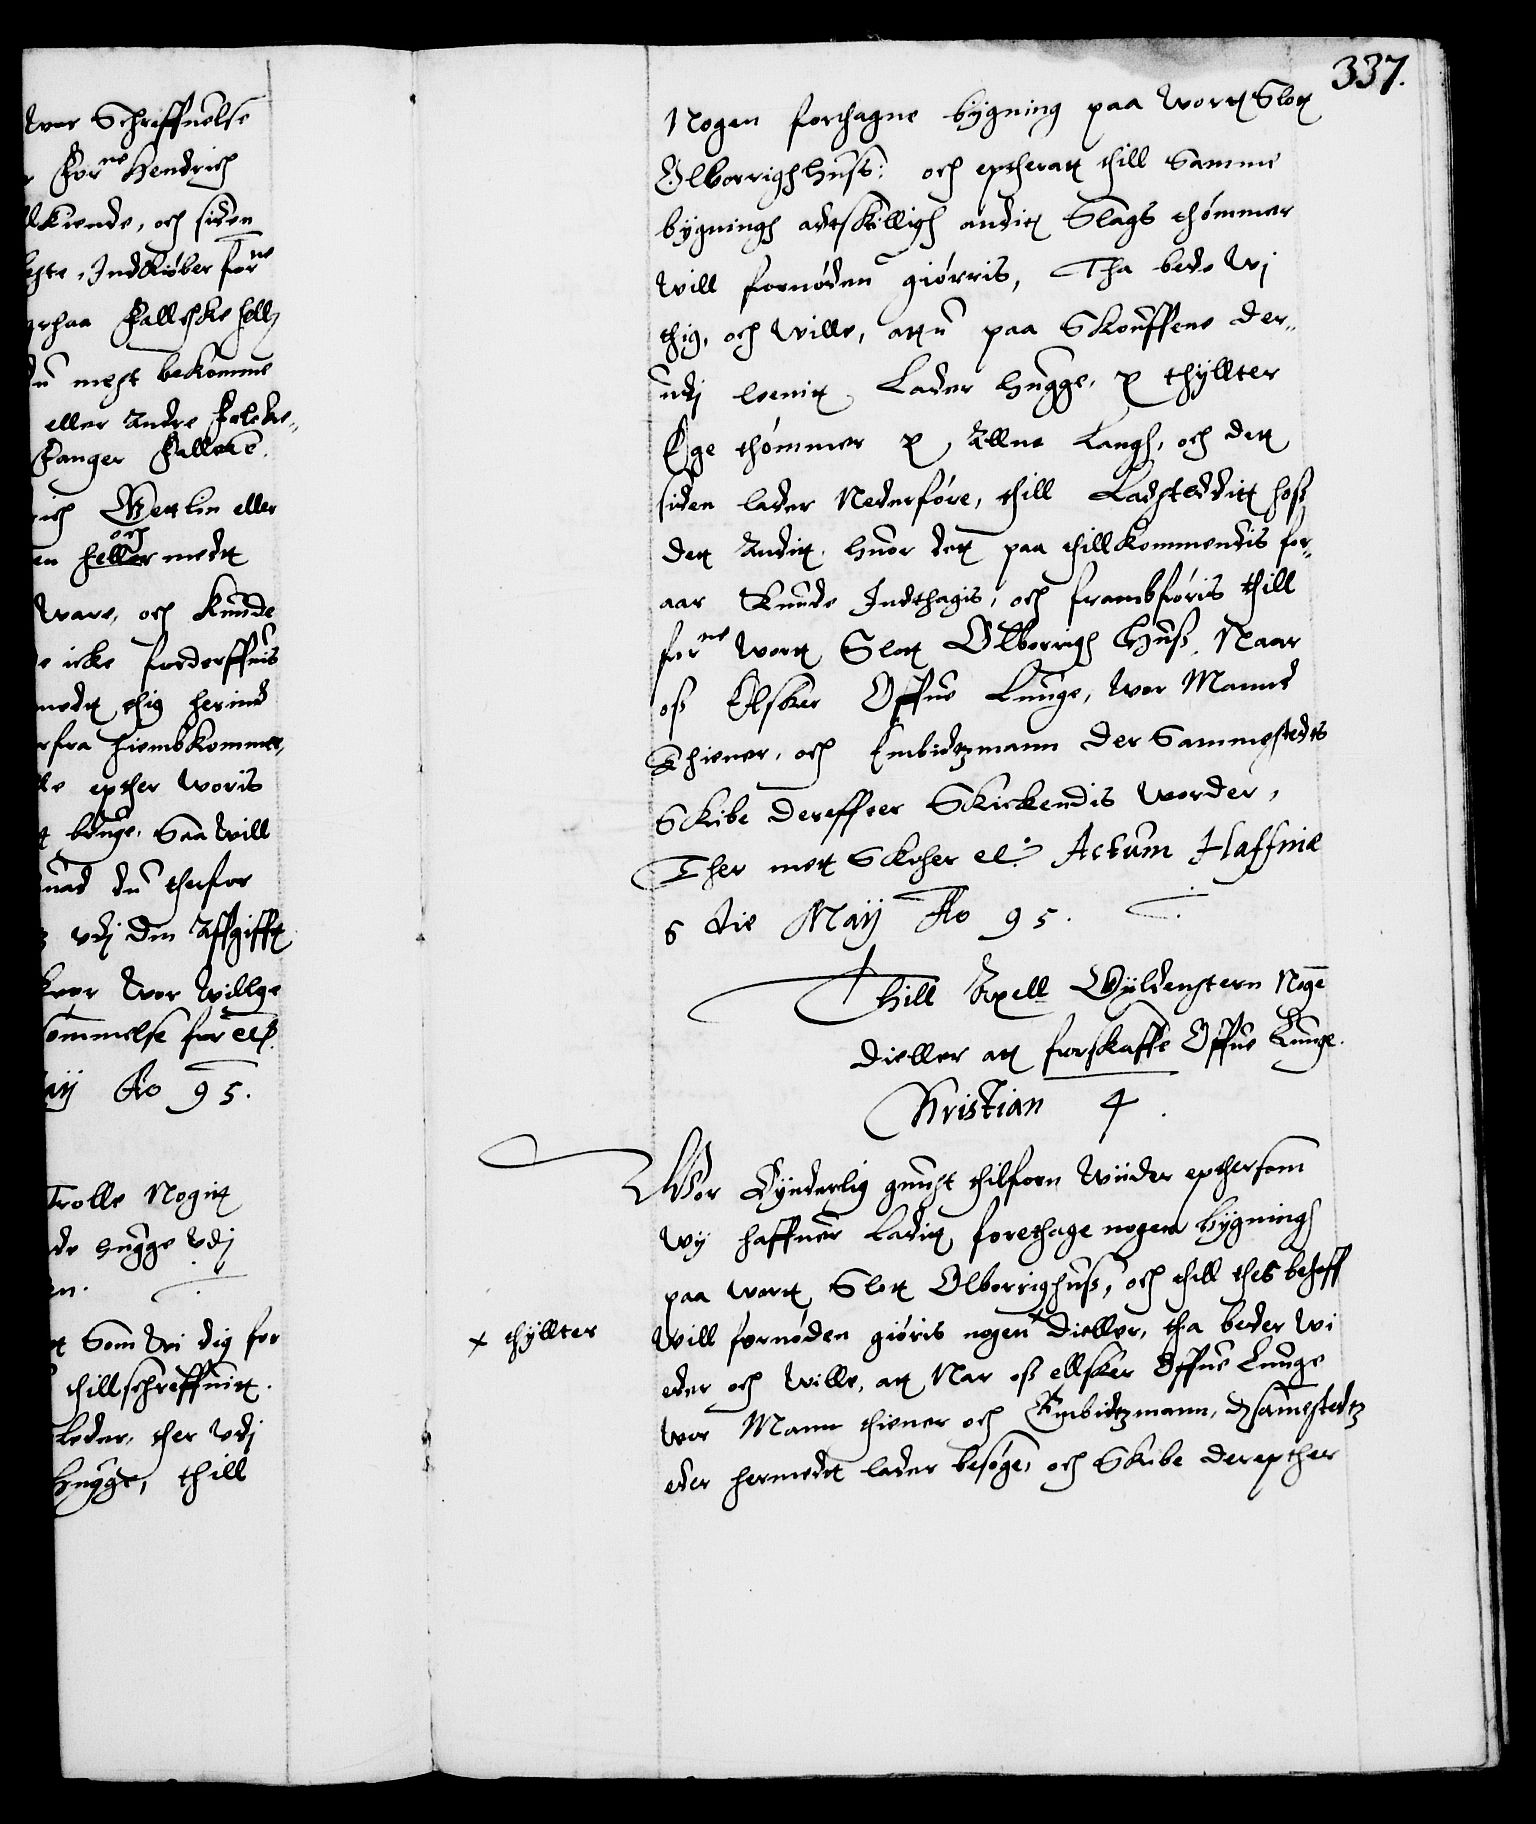 337.
wor Schreffuelse
forne Hendrich
kiende, och siden
Indkiøber forne
Falcke
mest bekomme
eller andre Falcke„
Fanger Falcke.
eller
och
en heller medt
ware, och kunde
icke forderffuis
medt thig herind
fra hiembkommer,
epther woris
bruge. Saa will
du therfor
udj din Affgifft
wor Willge
for etc.
Ao 95.
Trolle Nogit
hugge udj
en.
Som Wi dig for
thillschreffuit.
Leder, ther udj
hugge, thill
Nogen forthagne bygning paa wort Slot
Olborrighhuss: och eptherat thill Samme
bygningh adtskilligh andit Slags thømmer
will fornøden giørris, Tha bede Wj
thig, och wille, attu paa Skouffene der„
udj lenit Lader hugge, x thyllter
Ege thømmer x Allne Langh, och dett
siden lader Nederføre, thill Ladsteddit hoss
dett Andit, huor dett paa thillkommendis for„
aar Kunde Indthagis, och frambføris thill
forne wort Slot Olborrigh huss, Naar
oss Elsker Offue Lunge, wor Mannd
Thiener, och Embidtzmann der Sammestedts
Skibe dereffter Skickendis worder,
Ther mett Skeher etc. Actum Haffniæ
6 die Maij Ao 95.
Thill Axell Gyldenstern Noge
dieller att forskaffe Offue Lunge.
Christian 4.
Wor Synderlig gunst thilforn wiider epthersom
wij haffuer Ladit forethage nogen bygningh
paa wort Slot Olborrighuss, och thill thes behoff
x thyllter
will fornøden giøris nogen x dieller, tha beder wi
eder och wille, att Nar oss ellsker Offue Lunge
wor Mann thiener och Embidtzmann, dsamestedtz
eder hermedt lader besøge, och Skibe derepther